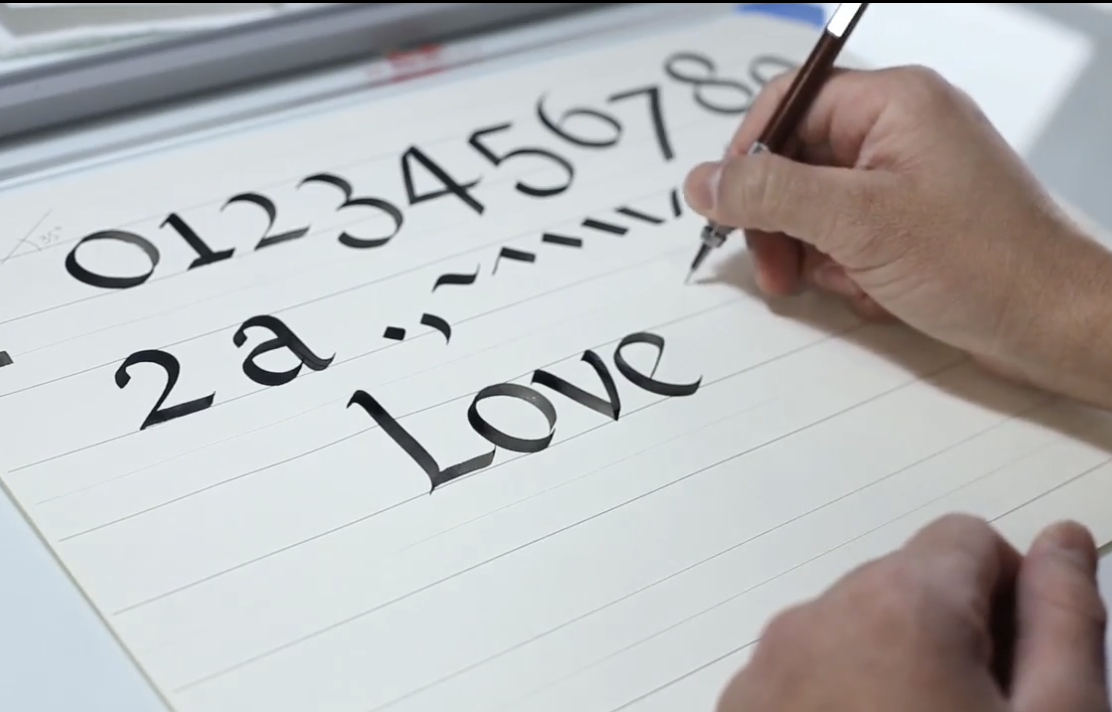 0123456789
35°
2 a . ,
Love